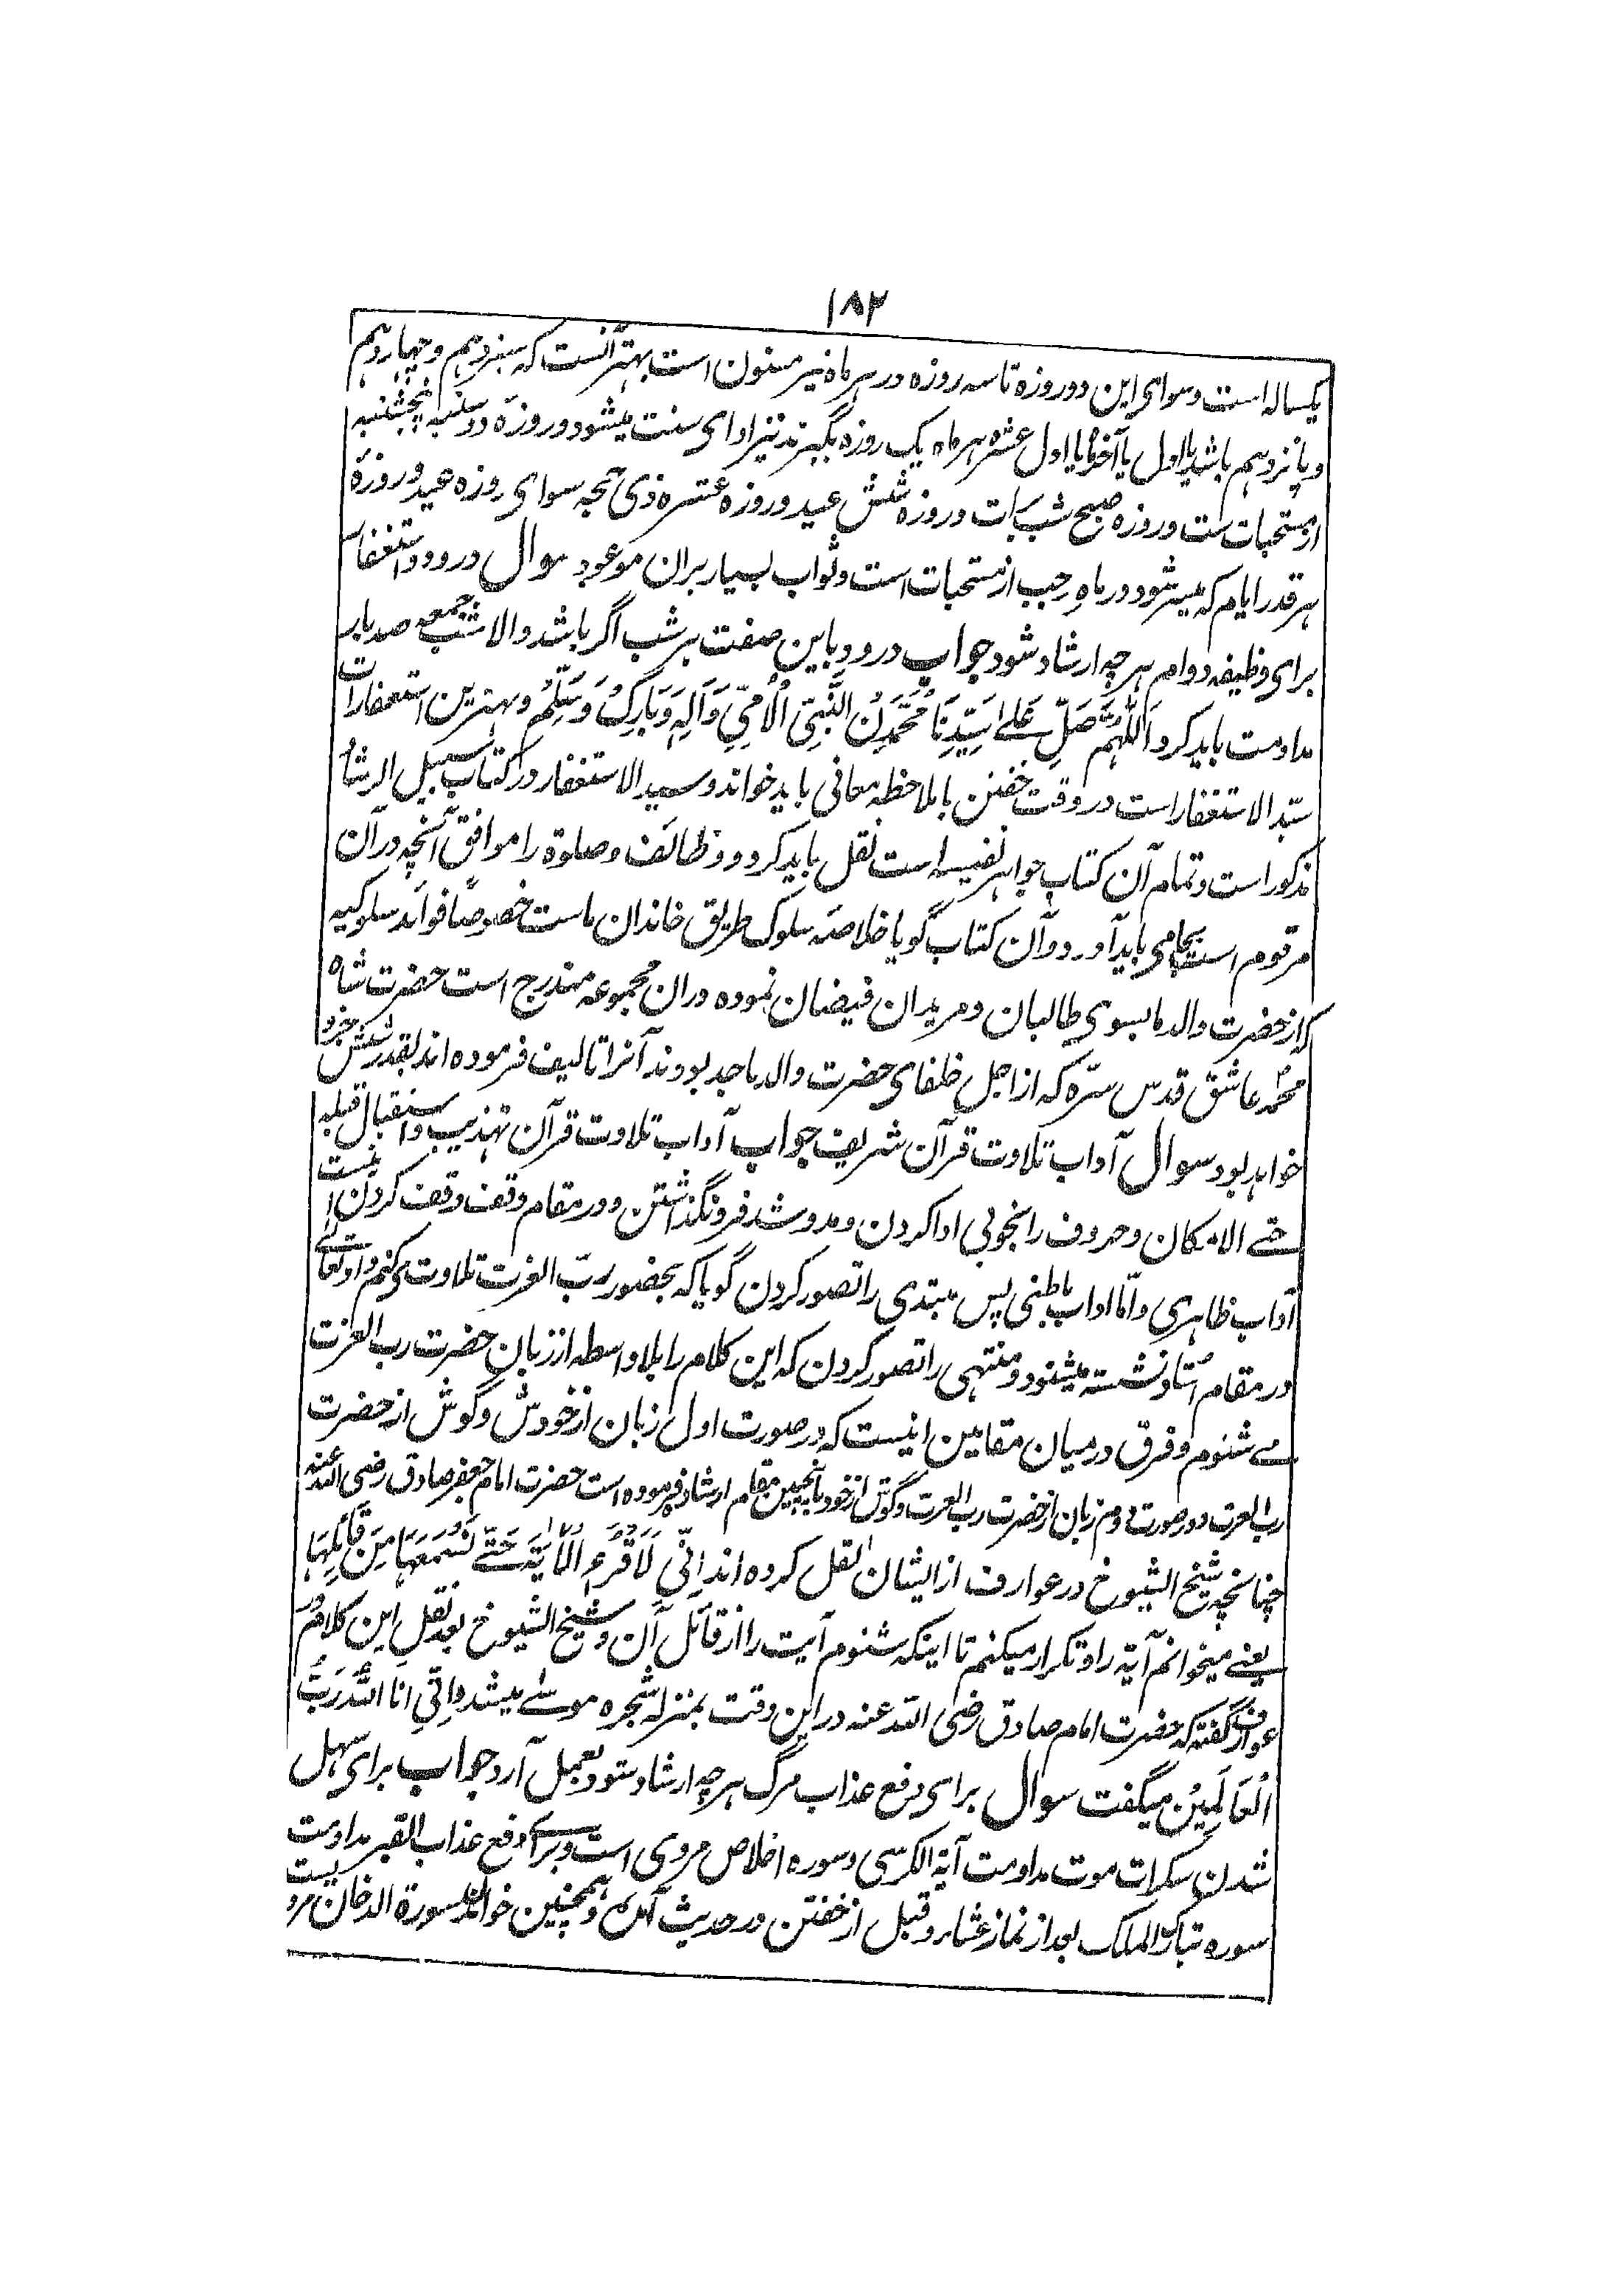 ۱۸۲
یکساله است وسوای این دو روزه تا سه روزه در هر ماه نیز مسنون است بهتر آنست که سیزدهم وچهاردهم
وپانزدهم باشد یا اول یا آخر یا اول عشره هر ماه یک روزه بگیرند نیز ادای سنت میشود وروزهٔ دوشنبه پنجشنبه
از مستحبات ست وروزه صبح شب برات وروزه شش عید وروزه عشره ذی الحجه سوای روزه عید وروزهٔ
هر قدر ایام که میسر شود در ماهِ رجب از مستحبات است وثواب بسیار بران موعود سوال درود واستغفار
برای وظیفه دوام هر چه ارشاد شود جواب درود باین صفت هر شب اگر باشد والا شب جمعه صد بار
مداومت باید کرد اَللّٰهُمَّ صَلِّ عَلٰے سَیِّدِنَا مُحَمَّدِنِ النَّبِیِّ الْاُمِّیِّ وَآلِهٖ وَبَارِكْ وَسَلِّمْ وبهترین استغفارات
سیّد الاستغفار است در وقت خفتن بملاحظه معانی باید خواند وسید الاستغفار در کتاب سبیل الرشاد
مذکور است وتمام آن کتاب جواهر نفیسه است نقل باید کرد ووظائف وصلوة را موافق آنچه در آن
مرقوم است بجا می باید آورد وآن کتاب گویا خلاصهٔ سلوک طریق خاندان ماست خصوصًا فوائد سلوکیه
که از حضرت والد ما بسوی طالبان ومریدان فیضان نموده دران مجموعه مندرج است حضرت شاه
محمد عاشق قدس سرّه که از اجل خلفای حضرت والد ماجد بودند آنرا تالیف فرموده اند بقدر شش جزو
خواهد بود سوال آداب تلاوت قرآن شریف جواب آداب تلاوت قرآن تهذیب واستقبال قبله
حتے الامکان وحروف را بخوبی ادا کردن ومد وشد فرونگذاشتن ودر مقام وقف وقف کردن اینست
آداب ظاهری وامّا اداب باطنی پس مبتدی را تصور کردن گویا که بحضور ربّ العزت تلاوت میکنم واو تعالے
در مقام اُستاد نشسته میشنود ومنتهی را تصور کردن که این کلام را بلا واسطه از زبان حضرت رب العزت
مے شنوم وفرق درمیان مقامین اینست که در صورت اول زبان از خودش وگوش از حضرت
رب العزت ودر صورت دوم زبان از حضرت رب العزت وگوش از خود بآنچنین مقام ارشاد فرموده است حضرت امام جعفر صادق رضی الله عنه
چنانچه شیخ الشیوخ در عوارف از ایشان نقل کرده اند اِنِّیْ لَاَقْرَءُ الْاٰیَةَ حَتّٰے اَسْمَعَهَا مِنْ قَائِلِهَا
یعنے میخوانم آیة را وتکرار میکنم تا اینکه شنوم آیت را از قائل آن وشیخ الشیوخ بعد نقل این کلام در
عوارف گفته که حضرت امام صادق رضی الله عنه در این وقت بمنزله شجره موسٰے میشد واِنِّی انا اللهُ رَبُّ
الْعَالَمِیْنَ میگفت سوال برای دفع عذاب مرگ هر چه ارشاد شود بعمل آرد جواب برای سهل
شدن سکرات موت مداومت آیة الکرسی وسوره اخلاص مروی است وبرائے دفع عذاب القبر مداومت
سوره تبارک الملک بعد از نماز عشاء وقبل از خفتن در حدیث آمده وهمچنین خواندن سورة الدخان مرویست